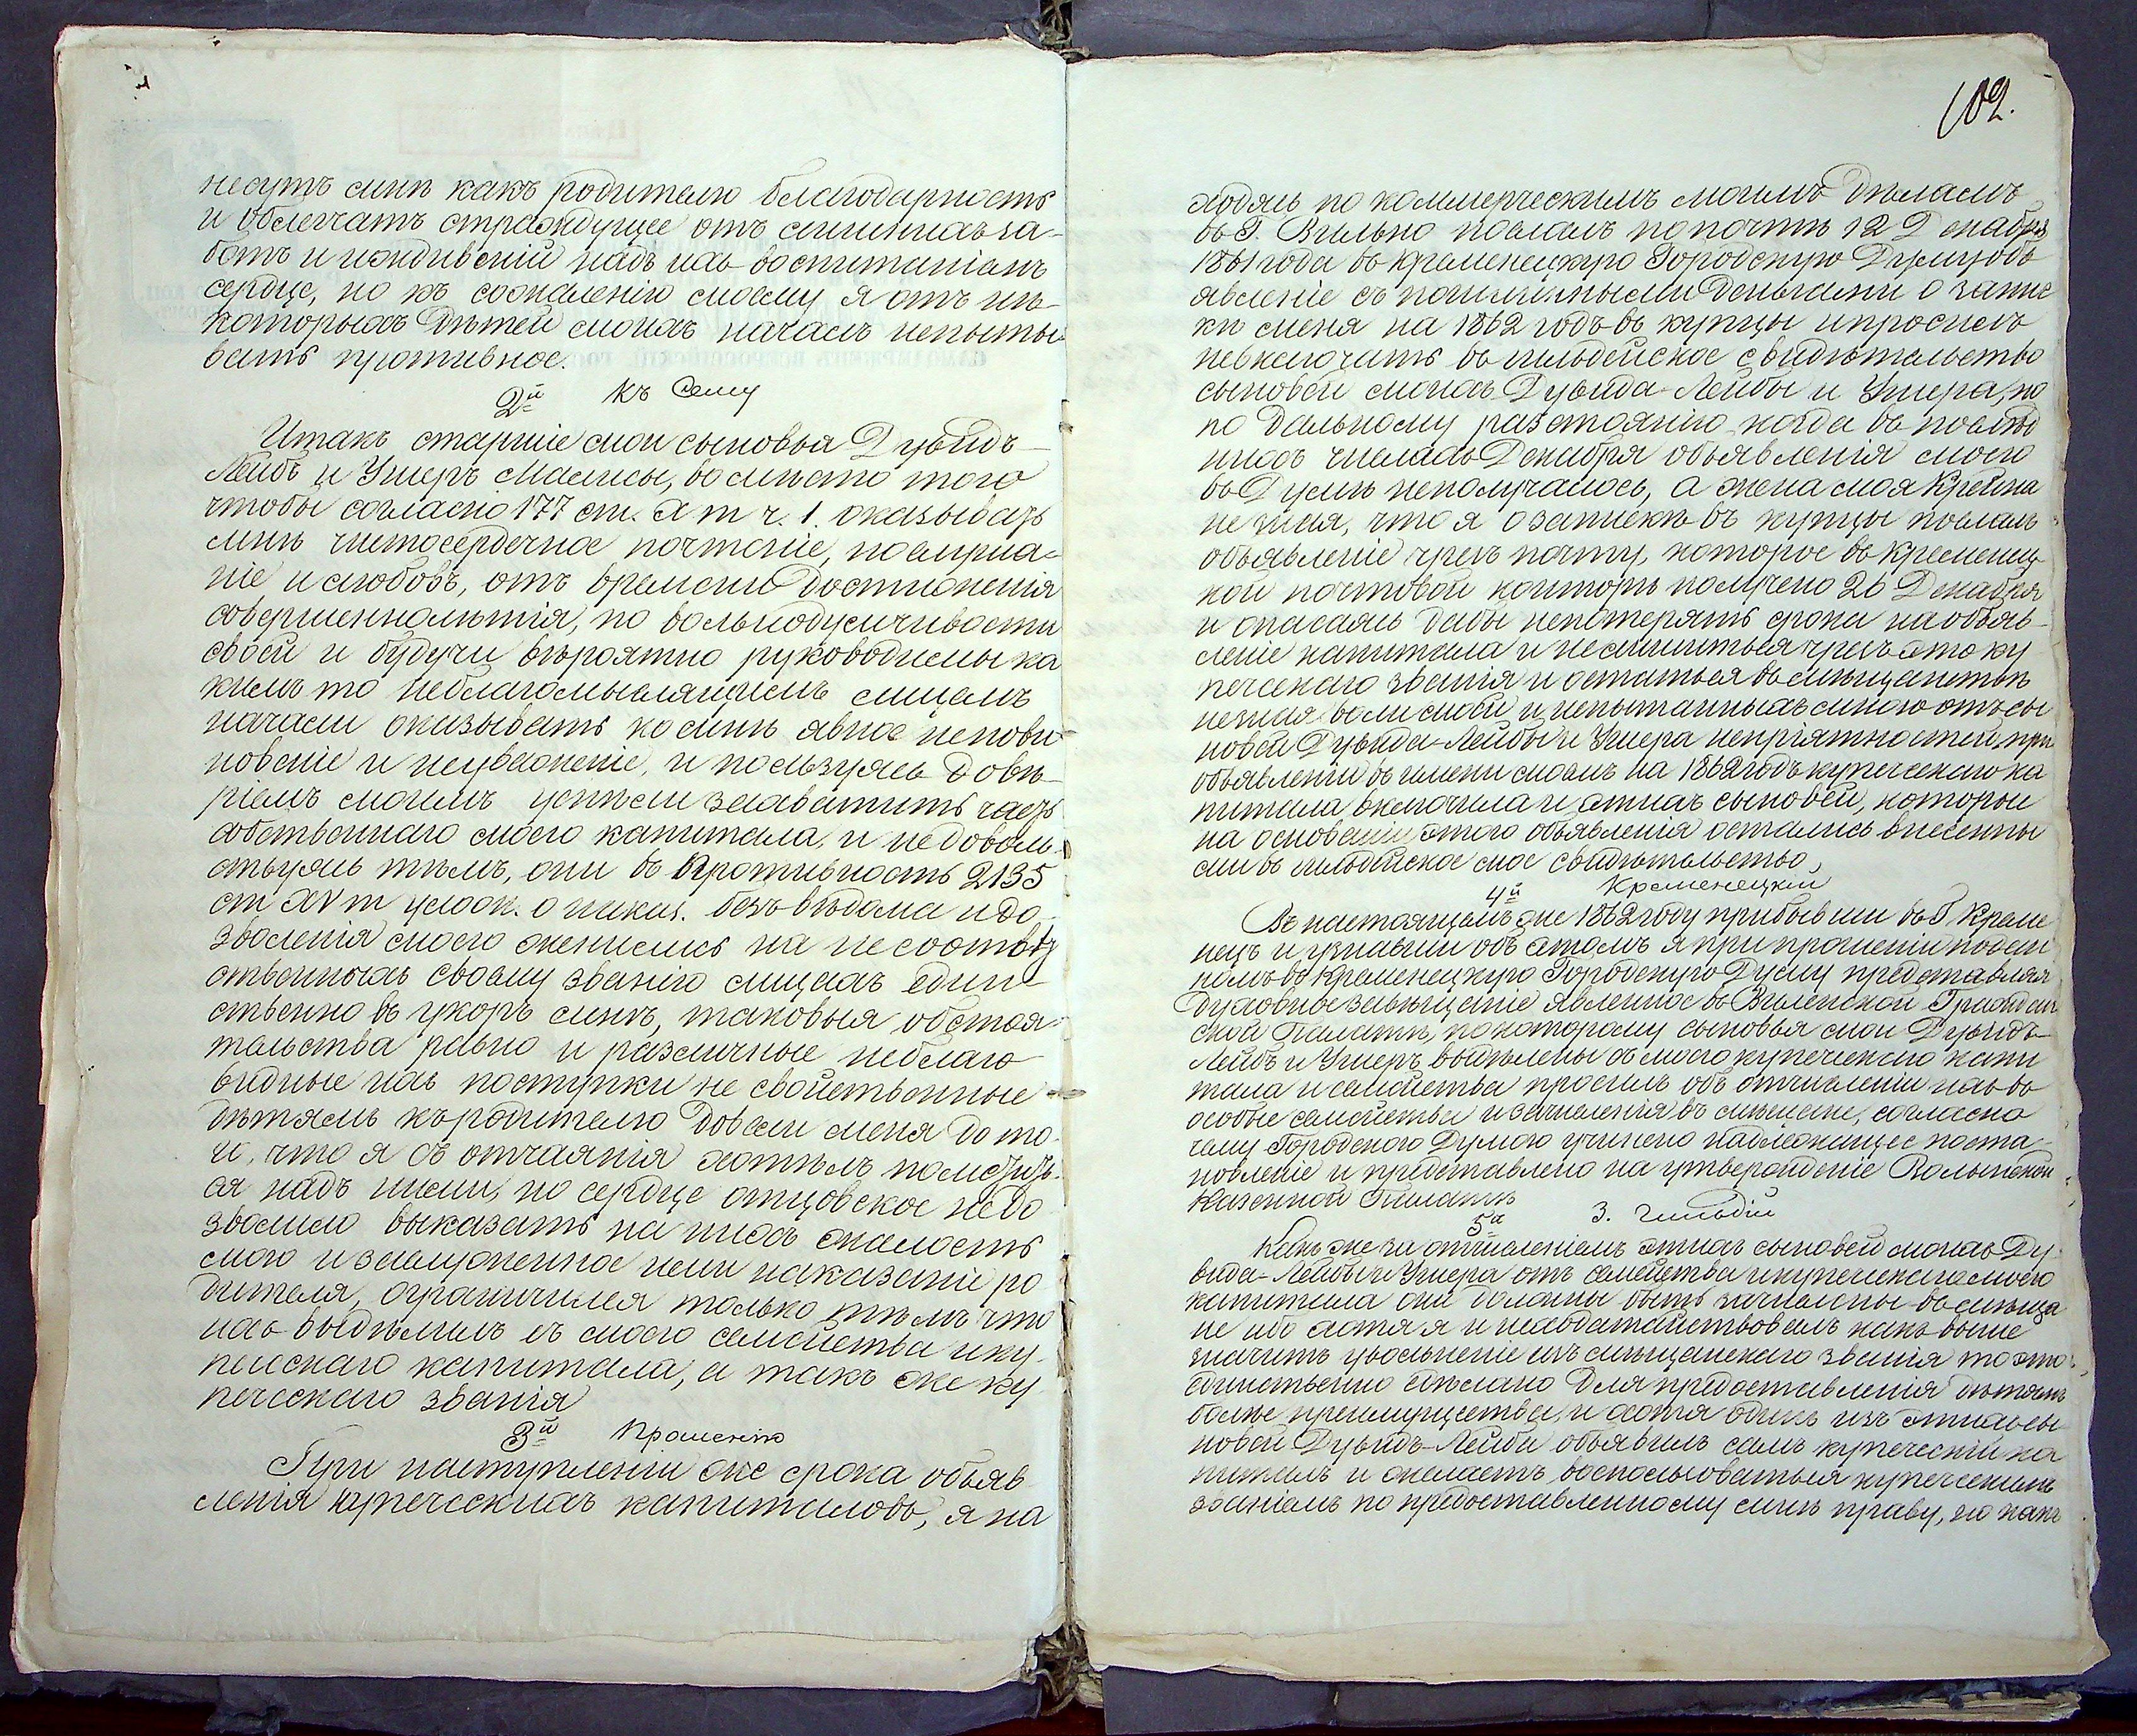 несутъ мнѣ какъ родителю благодарность
и облегчатъ страждущее отъ многихъ за-
ботъ и иждивеній надъ ихъ воспитаніемъ
сердце, но къ сожаленію моему я отъ нѣ-
которыхъ дѣтей моихъ началъ испыты
вать противное.
2й къ Сему
Итакъ старшіе мои сыновья Дувидъ
Лейбъ и Ушеръ, вмѣсто того
чтобы согласно 177 ст. Х т ч. 1. оказывать
мнѣ чистосердечное почтеніе, послуша-
ніе и любовь, отъ времени достиженія
совершеннолѣтія, по вольнодумчивости
своей и будучи вѣроятно руководимы ка
кимъ то неблагомыслящимъ лицемъ
начали оказывать ко мнѣ явное непови
новеніе и неуваженіе, и пользуясь довѣ-
ріемъ моимъ успѣли захватить часть
собственнаго моего капитала, и недоволь-
ствуясь тѣмъ, они въ противность 2135
ст ХV т улож. о наказ. безъ вѣдома и до-
зволенія моего женились на несоотвѣт
ственныхъ своему званію лицахъ един
ственно въ укоръ мнѣ, таковыя обстоя-
тельства равно и различные неблаго
видные ихъ поступки не свойственные
дѣтямъ къ родителю довели меня до то-
го, что я съ отчаянія хотѣлъ
ся надъ ними, но сердце отцовское недо
зволило выказать на нихъ жалость
мою и заслуженное ими наказаніе ро
дителя, ограничился только тѣмъ что
ихъ выдѣлилъ съ моего семейства и ку-
печескаго капитала, а такъ же ку
печескаго званія
3й Прошенію
При наступленіи же срока объяв
ленія купеческихъ капиталовъ, я на
102.
ходясь по коммерческимъ моимъ дѣламъ
въ Г. Вильно послалъ по почтѣ 12 Декабря
1861 года въ Кременецкую Городскую Думу объ
явленіе съ деньгами о запис
кѣ меня на 1862 годъ въ купцы и просилъ
невключать въ гильдейское свидѣтельство
сыновей моихъ Дувида-Лейбы и Ушера, но
по дальному разстоянію когда въ послѣд
нихъ числахъ Декабря объявленія моего
въ Думѣ неполучалось, а жена моя Крейна
не зная, что я о запискѣ въ купцы послалъ
объявленіе чрезъ почту, которое въ Кременец-
кой почтовой конторѣ получено 26 Декабря
и опасаясь дабы непотерять срока на объяв-
леніе капитала и нелишиться чрезъ это ку
печескаго званія и остаться въ мѣщанствѣ
незная воли моей и испытанныхъ мною отъ сы
новей Дувида-Лейбы и Ушера непріятностей, при
объявленіи въ имени моемъ на 1862 годъ купеческаго ка
питала включила и этихъ сыновей, которыи
на основаніи этого объявленія остались внесенны
ми въ гильдейское мое свидѣтельство,
4й Кременецкій
Въ настоящемъ же 1862 году прибывши въ Г. Креме
нецъ и узнавши объ этомъ я при прошеніи подан
номъ въ Кременецкую Городскую Думу представляя
Духовное завѣщаніе явленное въ Виленской Граждан
ской Палатѣ, по которому сыновья мои Дувидъ-
Лейбъ и Ушеръ выдѣлены съ моего купеческаго капи
тала и семейства просилъ объ отчисленіи ихъ въ
особые семейства и зачисленія въ мѣщане, согласно
чему Городскою Думою учинено надлежащее поста-
новленіе и представлено на утвержденіе Волынской
Казенной Палатѣ
5я 3. Гильдіи
Какъ же за отчисленіемъ этихъ сыновей моихъ Ду-
вида-Лейбы и Ушера отъ семейства и купеческаго моего
капитала они должны быть зачислены въ мѣща
не ибо хотя я и исходатайствовалъ какъ выше
значитъ увольненіе изъ мѣщанскаго званія то это
единственно сдѣлано для предоставленія дѣтямъ
болѣе преимущества, и хотя одинъ изъ этихъ сы
новей Дувидъ-Лейба объявилъ самъ купеческій ка
питалъ и желаетъ воспользоваться купеческимъ
званіемъ по предоставленному мнѣ праву, но какъ